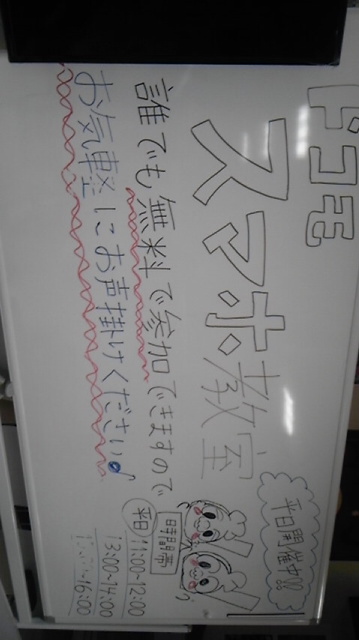 ドコモ
スマホ教室
平日開催中!!
誰でも無料で参加できますので
お気軽にお声掛けください♪
時間帯
平日 11:00~12:00
13:00~14:00
~16:00